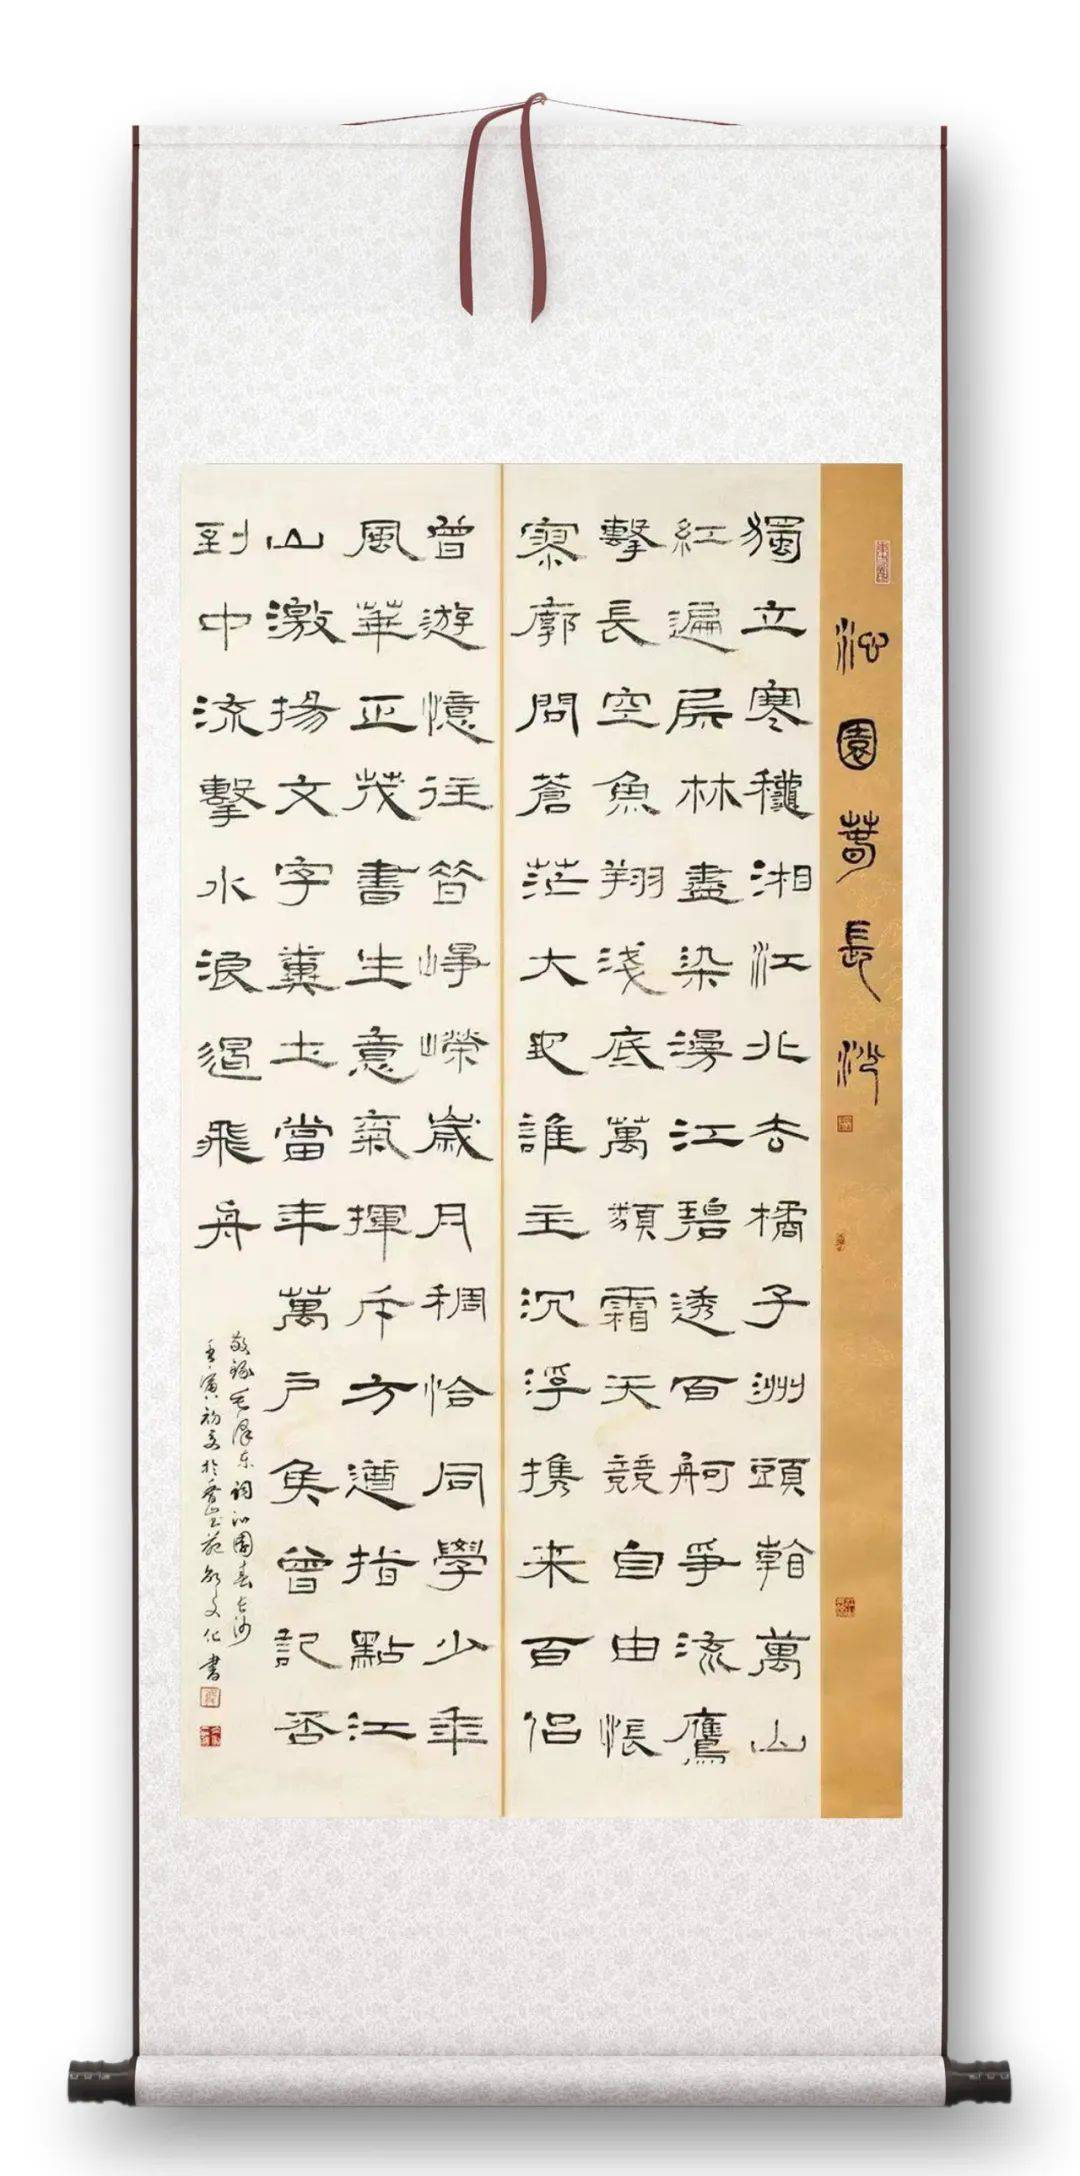 沁園春長沙
獨立寒穐湘江北去橘子洲頭看萬山
紅遍层林盡染漫江碧透百舸爭流鷹
擊長空魚翔淺底萬類霜天競自由悵
寥廓問蒼茫大地誰主沉浮携来百侣
曾遊憶往昔崢嶸歲月稠恰同學少年
風華正茂書生意氣揮斥方遒指點江
山激揚文字糞土當年萬户矦曾記否
到中流擊水浪遏飛舟
敬録毛泽东詞沁園春长沙
壬寅初夏於香山玉苑文化書